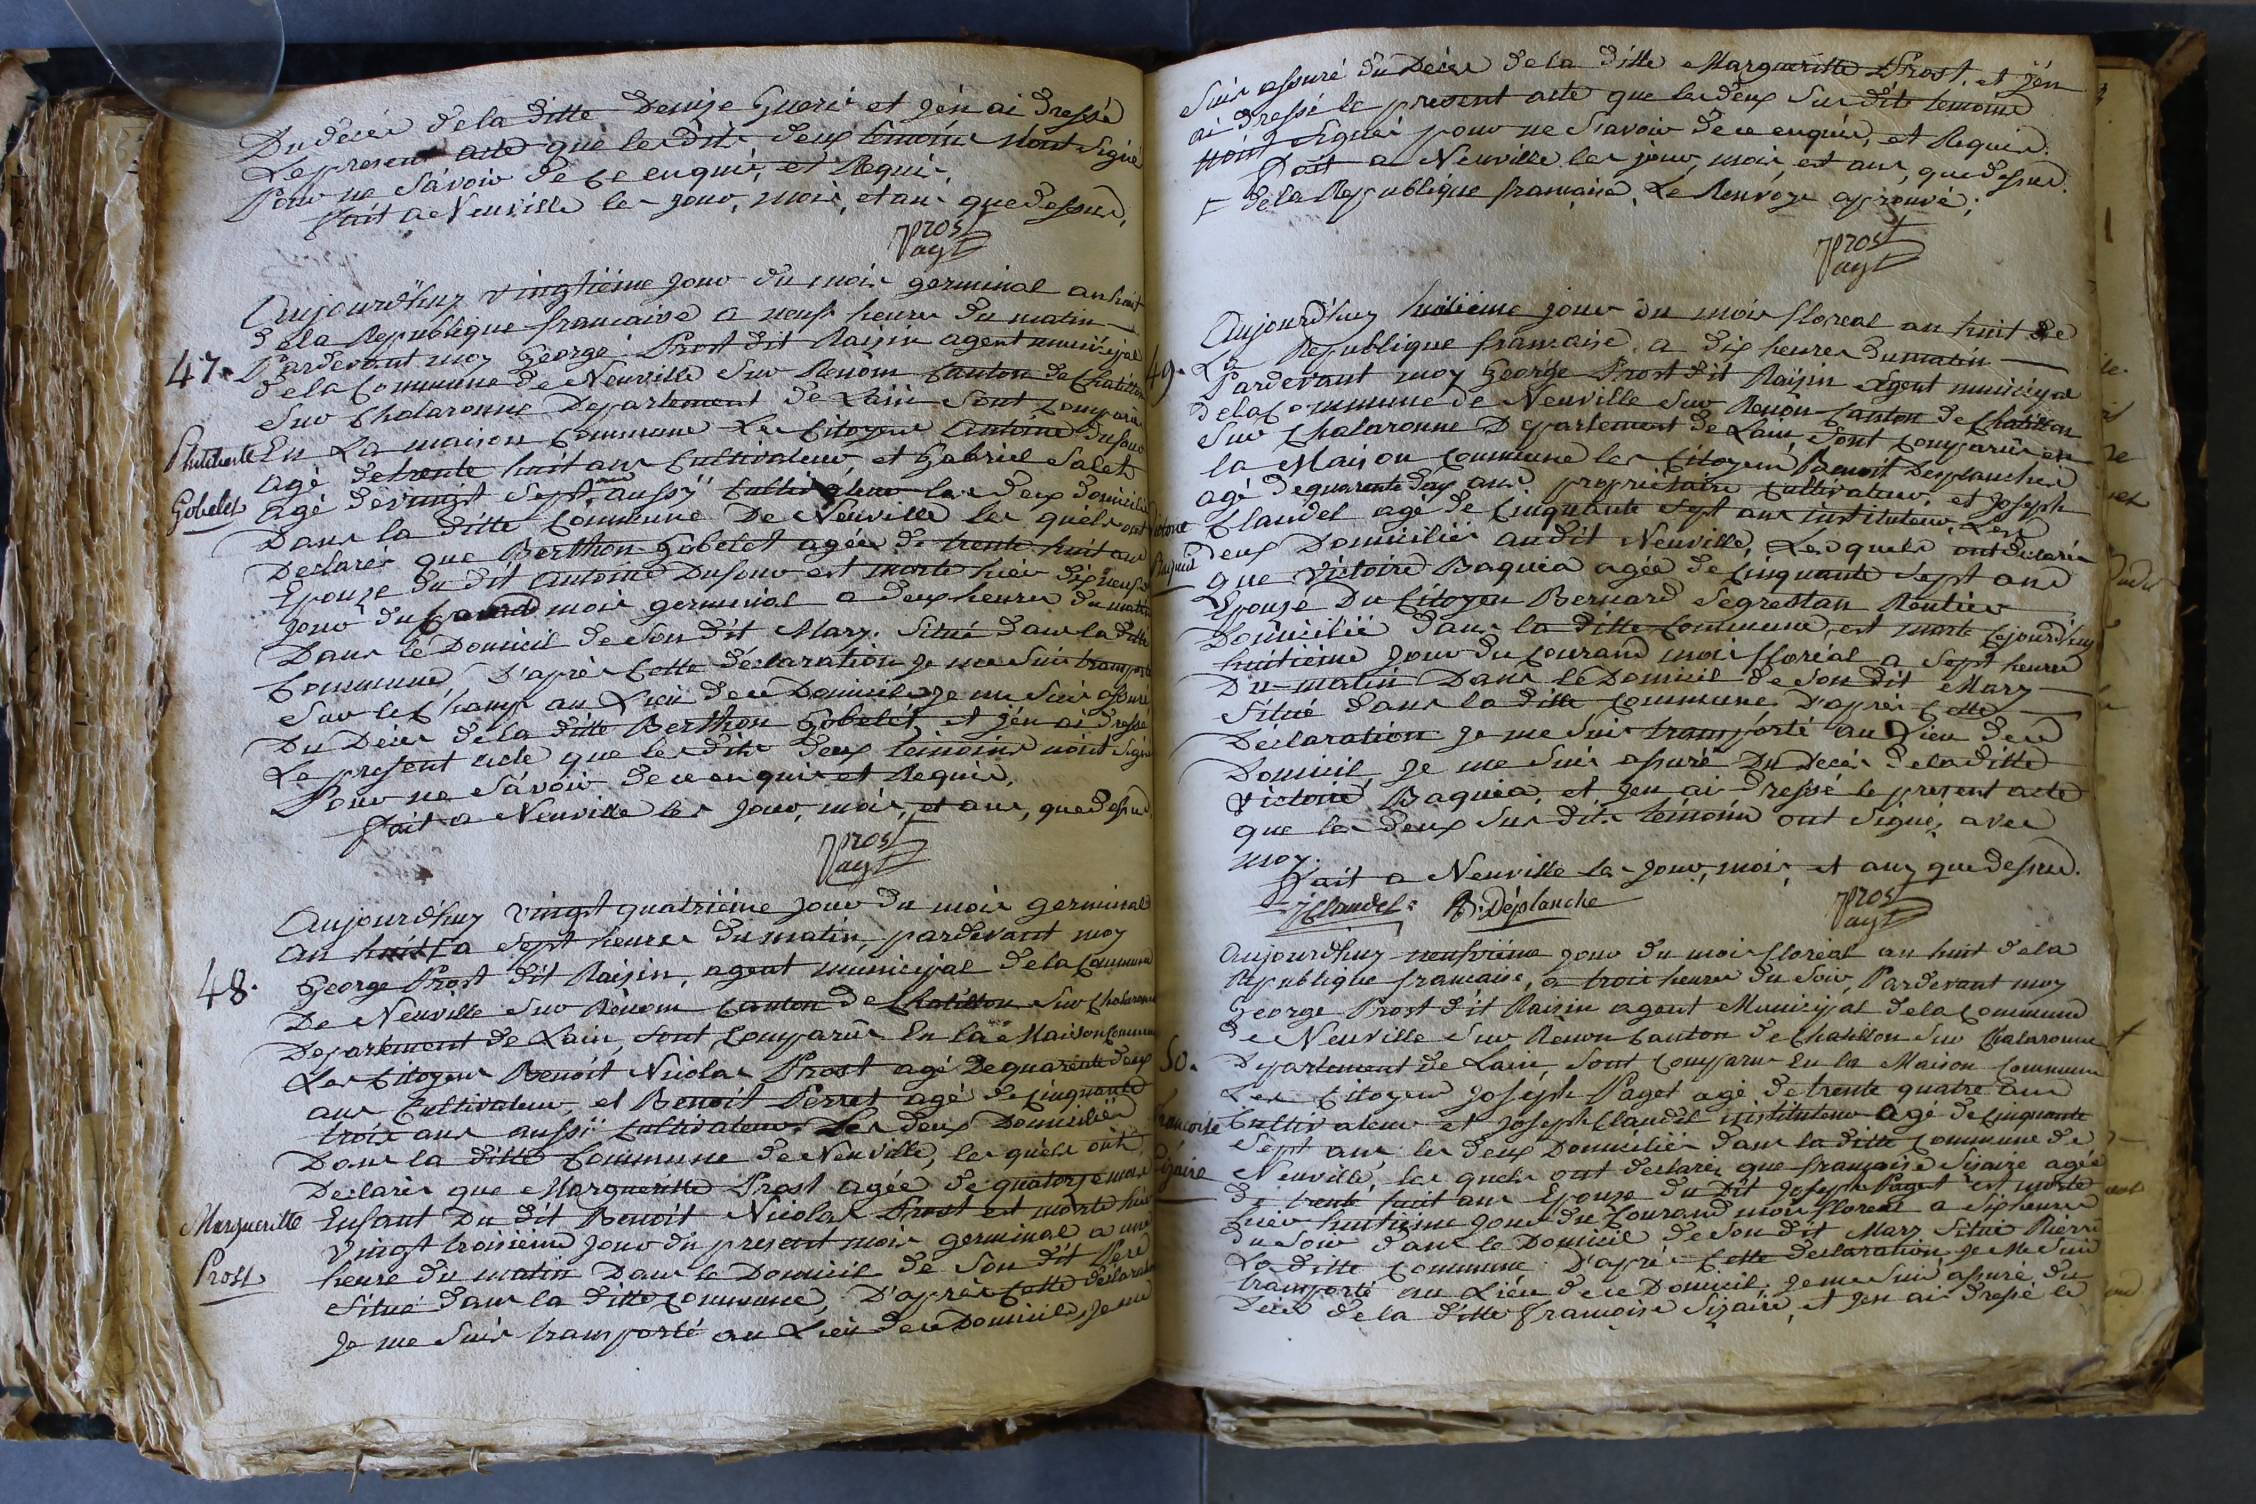 Du décès de la ditte Denize Gueri et j'én ai dressé
Le present acte que les dits deux temoins n'ont Signé
Pour ne Savoir de ce enquis, et Requis,
fait a Neuville les jour, mois, et an que dessus,
Prost
agt
Aujourd'huy vingtiéme jour du mois germinal an huit
de la Republique francaise a neuf heures du matin
47. Pardevant moy George Prost dit Raisin agent municipal
de la Commune de Neuville Sur Renom Canton de Chatillon
Sur Chalaronne Departement de Lain Sont comparus
Philiberte En La maison Commune Les Citoyens Antoine Dufour
agé de trente huit ans Cultivateur, et Gabriel Salet
Gobelet agé de vingt Sept ans aussy Cultivateur les deux domicilié
Dans la ditte Commune De Neuville les quels ont
Declarés que Berthon Gobelet agée de trente huit ans
Epouze du dit Antoine Dufour est morte hiér dix neuf
jour du Courand mois germinal a deux heures du matin
Dans le Domicil de Son dit Mary. Situé dans la ditte
Commune, D'aprés Cette déclaration je me Suis transporté
Sur le Champ au Lieu de ce Domicil, je me Suis assuré
Du Décès de la ditte Berthon Gobelét, et j'én ai dressé
Le present acte que les dits deux témoins n'ont Signé
Pour ne Sávoir de ce enquis et Requis,
fait a Neuville les jour, mois, et ans, que dessus,
Prost
agt
Aujourd'huy vingt quatriéme jour du mois germinal
an huit a Sept heures du matin, pardevant moy
48. George Prost dit Raisin, agent municipal de la Commune
De Neuville Sur Rénom Canton de Chatillon Sur Chalaronne
Departement de Lain, Sont Comparûs En La Maison Commune
Les Citoyens Benoit Nicolas Prost agé de quarente deux
ans Cultivateur, et Benoit Perret agé de Cinquante
trois ans aussi Cultivateur, Les deux Domiciliés
Dans la ditte Commune de Neuville, les quels ont
Declarés que Margueritte Prost agée de quatorze mois
Margueritte Enfant Du dit Benoit Nicolas Prost est morte hiér
Vingt troisieme jour du present mois germinal a une
Prost heure du matin Dans le Domicil de Son dit Pere
Situé dans la ditte Commune, D'aprés Cette déclaration
Je me Suis transporté au Lieu de ce Domicil, je me
Suis assuré du Décés de la ditte Margueritte Prost, et j'én
ai dressé le present acte que les deux Sus dits temoins
n'ont Signés pour ne Savoir de ce enquis, et Requis.
Fait a Neuville les jour, mois, et ans, que dessus.
de la Republique francaise, Le Renvoye aprouvé;
Prost
agt
Aujourd'huy huitiéme jour du mois floreal an huit de
49. La Republique francaise, a dix heures du matin
Pardevant moy George Prost dit Raisin Agent municipal
de la Commune de Neuville Sur Renôn Canton de Chatillon
Sur Chalaronne Departement de Lain, Sont Comparûs en
la Maison Commune les Citoyens Benoit Desplanches
agé de quarente ans propriétaire Cultivateur, et Joseph
Claudel agé de Cinquante Sept ans instituteur, Les
deux Domiciliés au dit Neuville, Les quels ont declarés
que Victoire Baquia agée de Cinquante Sept ans
Epouze Du Citoyen Bernard Segrestan Rentier
Domiciliée dans la ditte Commune, est morte Cejourd'huy
huitiéme jour du Courand mois floréal a Sept heures
Du matin Dans le Domicil de Son dit Mary
Situé dans la ditte Commune D'aprés Cette
Déclaration je me Suis transporté au Lieu de ce
Domicil, je me Suis assuré Du Decés de la ditte
Victoire Baquia, et j'en ai dressé le present acte
que les deux Sus dits témoins ont Signés, avec
moy.
Fait a Neuville les jour, mois, et ans que dessus.
J Claudel B. Déplanche Prost
agt
Aujourd'huy neufviéme jour du mois floréal an huit de la
Republique francaise, a trois heures du Soir, Pardevant moy
George Prost dit Raisin agent Municipal de la Commune
de Neuville Sur Renom Canton de Chatillon Sur Chalaronne
50. Departement de Lain, Sont Comparus En la Maison Commune
Les Citoyens Joséph Paget agé de trente quatre ans
Cultivateur et Joseph Claudel instituteur agé de Cinquante
Sept ans les deux Domiciliés dans la ditte Commune de
Neuville, les quels ont declarés que francoise Sizaire agée
de trente huit ans Epouze du Dit Joseph Paget est morte
hiér huitiéme jour du Courand mois floreal a Six heures
du Soir dans le Domicil de Son dit Mary Situé
La ditte Commune D'aprés Cette declaration, je Me Suis
transporté au Liéu de ce Domicil, je me Suis assuré du
Décés de la ditte francoise Sizaire, et j'en ai dressé le